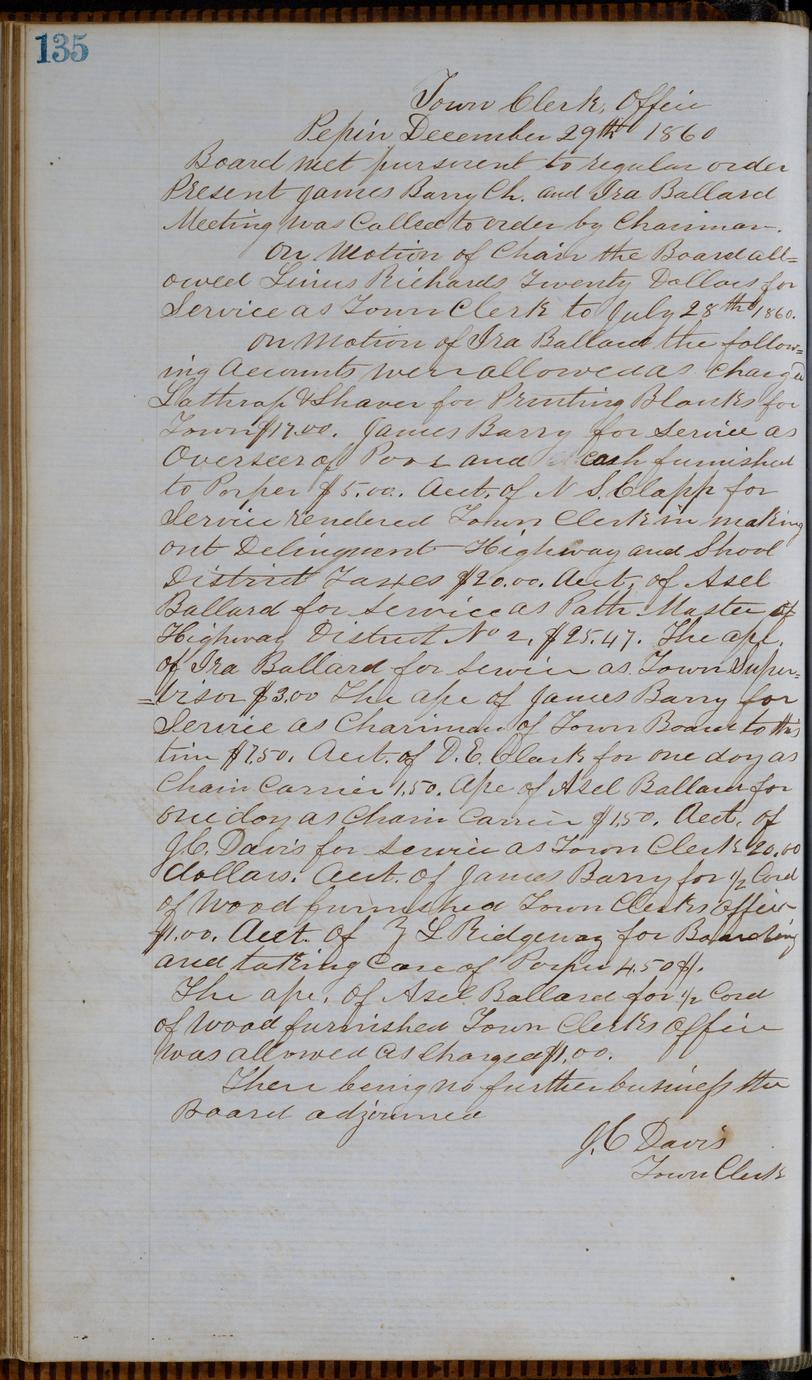 135
Town Clerk, Office
Pepin December 29th 1860
Board met pursuent to regular order
Present James Barry Ch. and Ira Ballard
Meeting was Called to order by Chairman.
On Motion of Chair the Board all=
owed Linus Richards Twenty Dollars for
Service as Town Clerk to July 28th 1860.
On Motion of Ira Ballard the follow=
ing Accounts were allowed as charged
Lathrop & Shaver for Printing Blanks for
Town $17.00. James Barry for Service as
Overseer of Poor and cash furnished
to Porper $5.00. Acct. of N S. Clapp for
Service rendered Town Clerk in making
out Delinquent Highway and Shool
District Taxes $20.00. Acct, of Asel
Ballard for service as Path Master of
Highway District No 2, $25.47. The apc.
of Ira Ballard for service as Town Super=
=visor $3.00 The apc of James Barry for
Service as Chariman of Town Board to this
time $7.50. Acct. of D. E. Clark for one day as
Chain Carrier 1.50. Apc of Asel Ballard for
one day as Chain Carrier $1.50. Acct. of
J.C. Davis for service as Town Clerk 20.00
dollars. Acct. of James Barry for 1/2 Cord
of Wood furnished Town Clerks Office
$1.00. Acct. of L Ridgeway for Boarding
and taking Care of Porper 4.50 $.
The apc. of Asel Ballard for 1/2 Cord
of Wood furnished Town Clerks Office
was allowed as Charged $1.00.
There being no further business the
Board adjourned
J. C Davis
Town Clerk